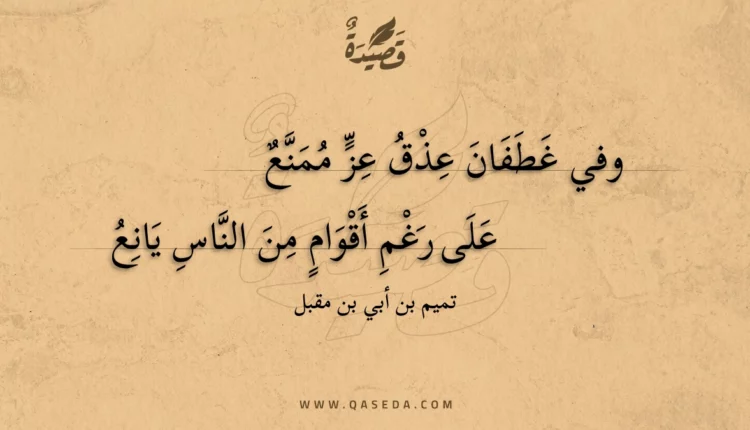 قَصِيْدَةٌ
وفي غَطَفَانَ عِذْقُ عِزٍّ مُمَنَّعٌ
عَلَى رَغْمِ أَقْوَامٍ مِنَ النَّاسِ يَانِعُ
تميم بن أبي بن مقبل
WWW.QASEDA.COM